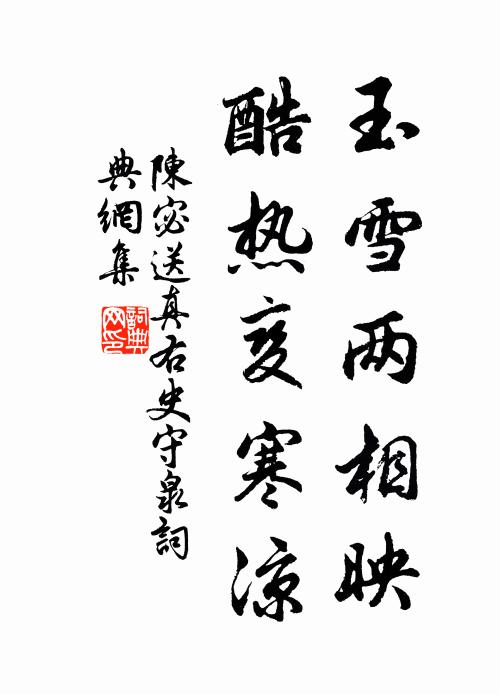 玉雪两相映
酷热变寒凉
陳宓送真右史守泉詞
典網集
詞典网印